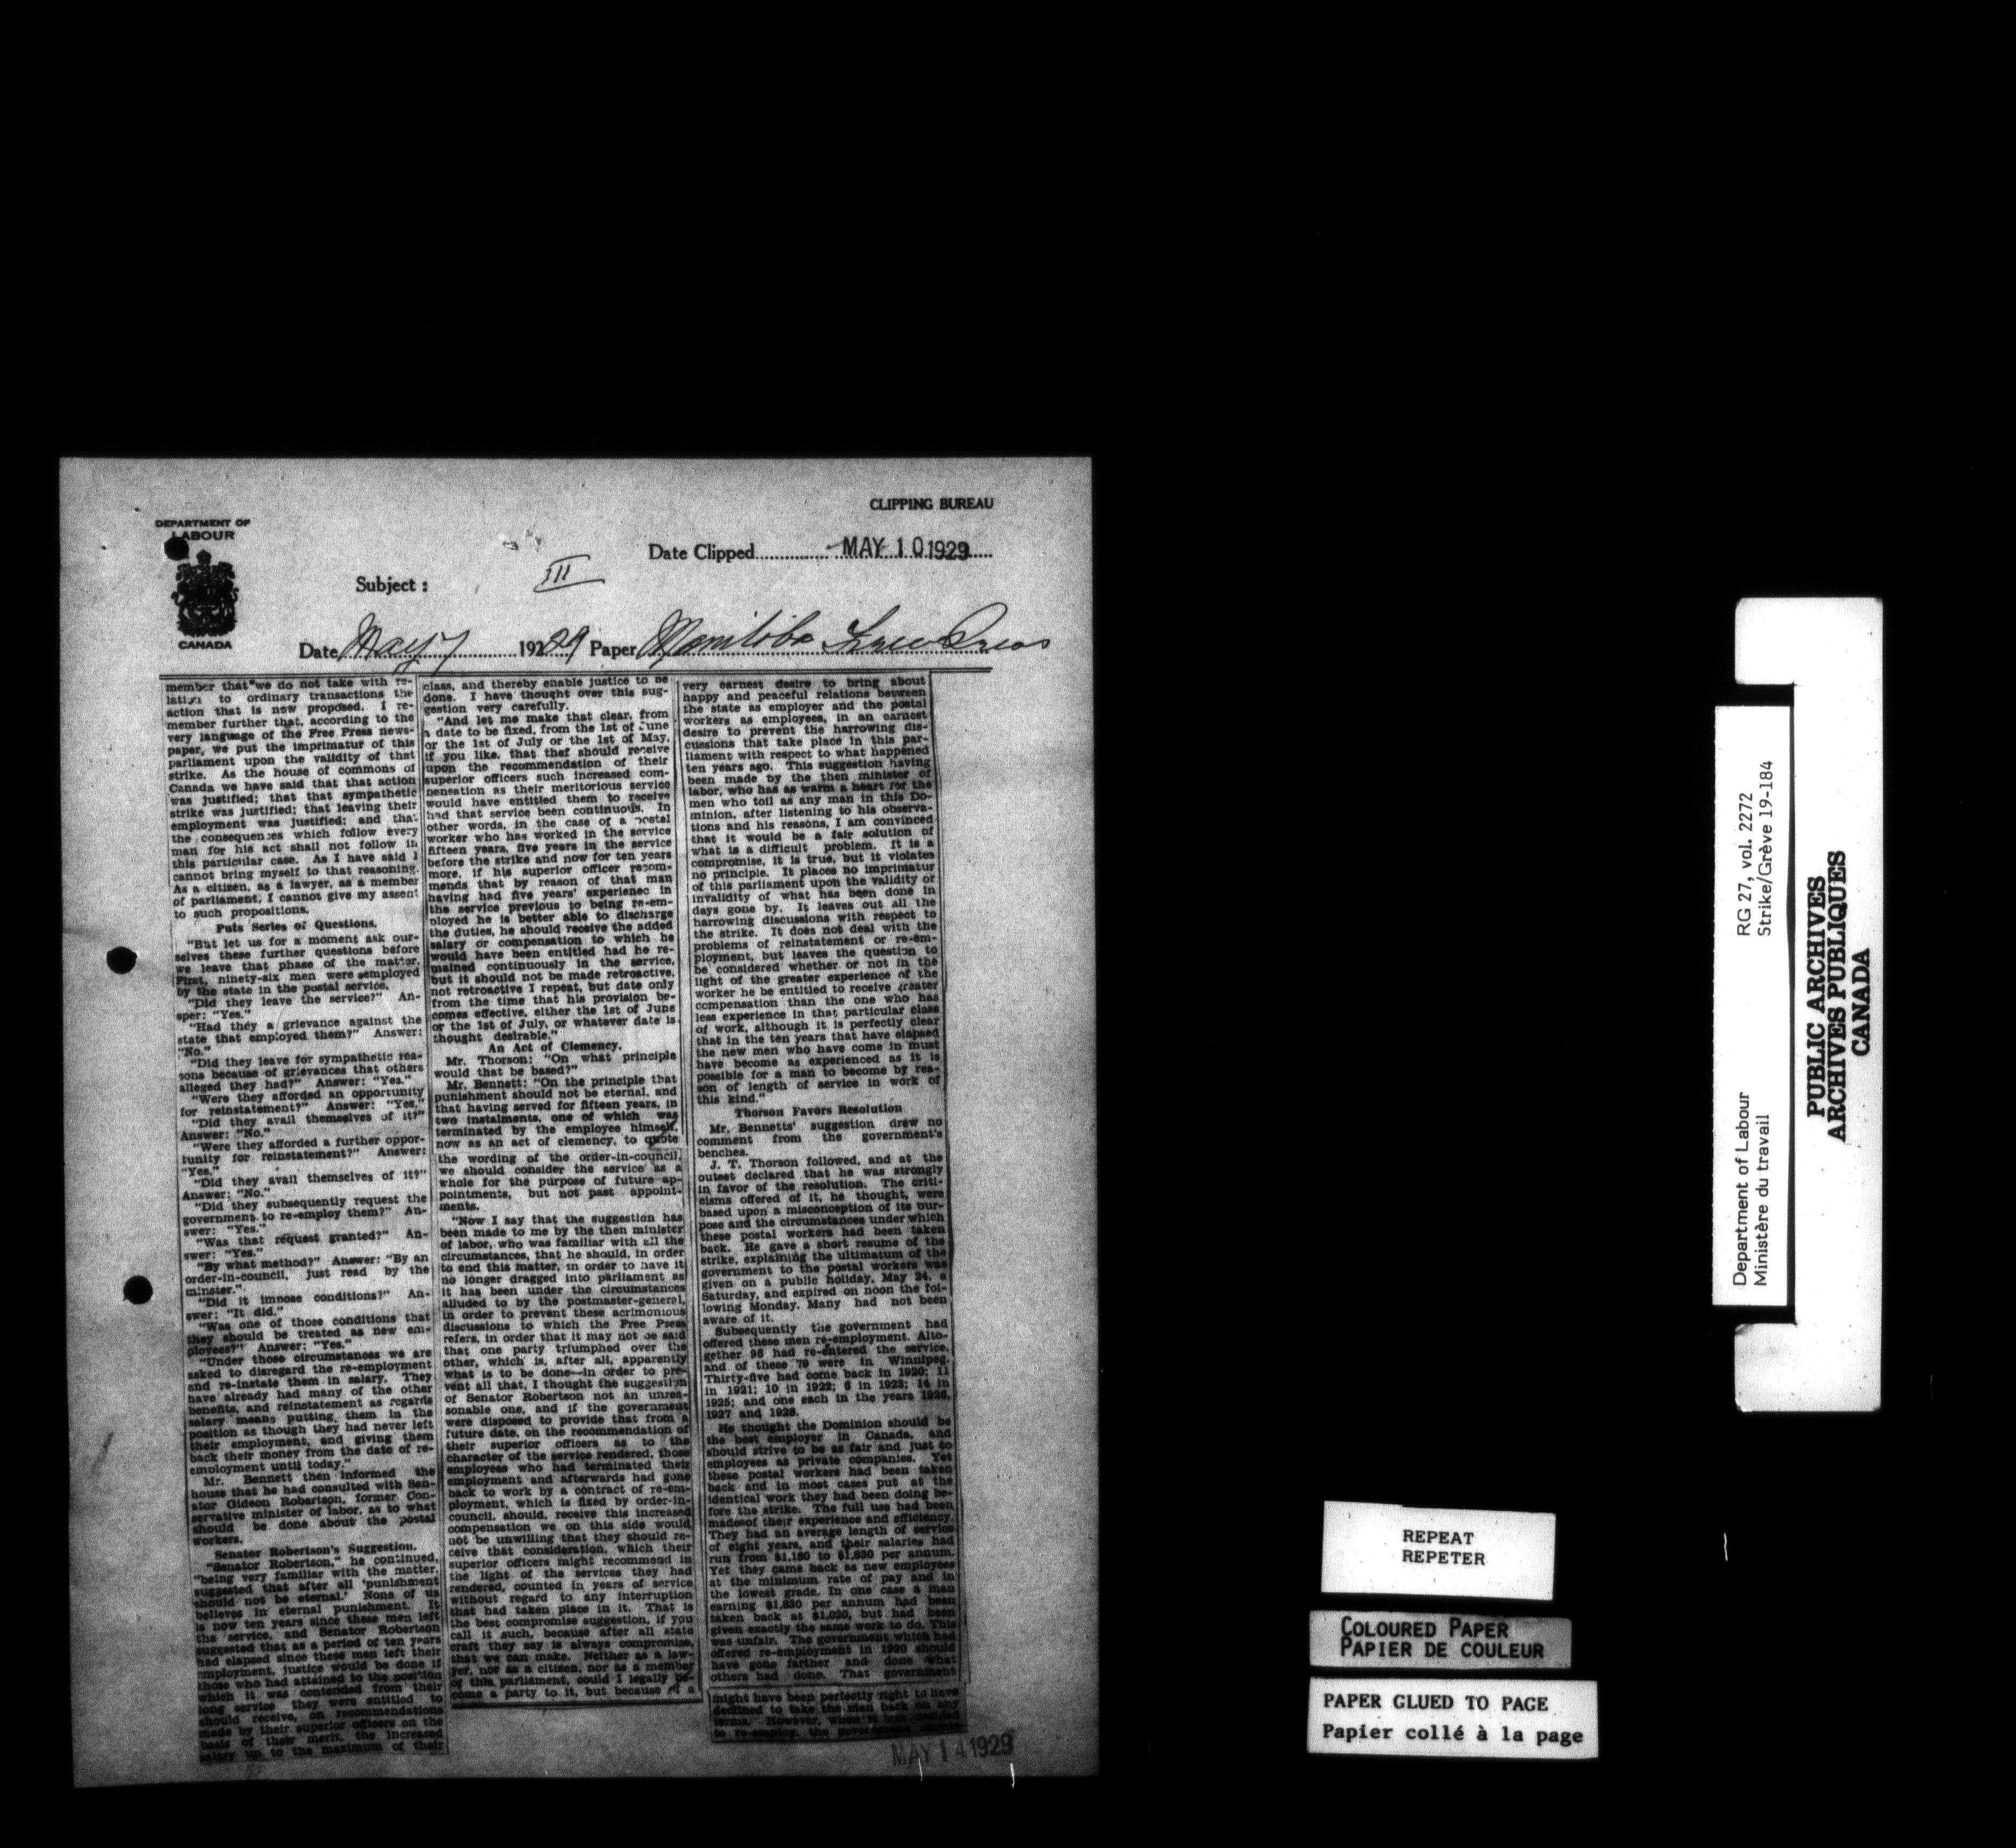 CLIPPING BUREAU
DEPARTMENT OF
LABOUR
CANADA
Date Clipped MAY 10 1929
Subject :
III
Date May 7 1929 Paper Manitoba Free Press
member that we do not take with re-
lation to ordinary transactions the
action that is now proposed. I re-
member further that, according to the
very language of the Free Press news-
paper, we put the imprimatur of this
parliament upon the validity of that
strike. As the house of commons of
Canada we have said that that action
was justified; that that sympathetic
strike was justified; that leaving their
employment was justified; and that
the consequences which follow every
man for his act shall not follow in
this particular case. As I have said I
cannot bring myself to that reasoning.
As a citizen, as a lawyer, as a member
of parliament, I cannot give my assent
to such propositions.
Puts Series of Questions.
"But let us for a moment ask our-
selves these further questions before
we leave that phase of the matter.
First, ninety-six men were employed
by the state in the postal service.
"Did they leave the service?" An-
sper: "Yes."
"Had they a grievance against the
state that employed them?" Answer:
"No."
"Did they leave for sympathetic rea-
sons because of grievances that others
alleged they had?" Answer: "Yes."
"Were they afforded an opportunity
for reinstatement?" Answer: "Yes."
"Did they avail themselves of it?"
Answer: "No."
"Were they afforded a further oppor-
tunity for reinstatement?" Answer:
"Yes."
"Did they avail themselves of it?"
Answer: "No."
"Did they subsequently request the
government to re-employ them?" An-
swer: "Yes."
"Was that request granted?" An-
swer: "Yes."
"By what method?" Answer: "By an
order-in-council, just read by the
minster."
"Did it impose conditions?" An-
swer: "It did."
"Was one of those conditions that
they should be treated as new em-
ployees?" Answer: "Yes."
"Under those circumstances we are
asked to disregard the re-employment
and re-instate them in salary. They
have already had many of the other
benefits, and reinstatement as regards
salary means putting them in the
position as though they had never left
their employment, and giving them
back their money from the date of re-
employment until today."
Mr. Bennett then informed the
house that he had consulted with Sen-
ator Gideon Robertson, former Con-
servative minister of labor, as to what
should be done about the postal
workers.
Senator Robertson's Suggestion.
"Senator Robertson," he continued,
"being very familiar with the matter,
suggested that after all 'punishment
should not be eternal.' None of us
believes in eternal punishment. It
is now ten years since these men left
the service, and Senator Robertson
suggested that as a period of ten years
had elapsed since these men left their
employment, justice would be done if
those who had attained to the position
which it was contended from their
long service they were entitled to
should receive, on recommendations
made by their superior officers on the
basis of their merit, the increased
salary up to the maximum of their
class, and thereby enable justice to be
done. I have thought over this sug-
gestion very carefully.
"And let me make that clear, from
a date to be fixed, from the 1st of June
or the 1st of July or the 1st of May,
if you like, that thef should receive
upon the recommendation of their
superior officers such increased com-
pensation as their meritorious service
would have entitled them to receive
had that service been continuous. In
other words, in the case of a postal
worker who has worked in the service
fifteen years, five years in the service
before the strike and now for ten years
more, if his superior officer recom-
mends that by reason of that man
having had five years' experienec in
the service previous to being re-em-
ployed he is better able to discharge
the duties, he should receive the added
salary or compensation to which he
would have been entitled had he re-
mained continuously in the service,
but it should not be made retroactive,
not retroactive I repeat, but date only
from the time that his provision be-
comes effective, either the 1st of June
or the 1st of July, or whatever date is
thought desirable."
An Act of Clemency.
Mr. Thorson: "On what principle
would that be based?"
Mr. Bennett: "On the principle that
punishment should not be eternal, and
that having served for fifteen years, in
two instalments, one of which was
terminated by the employee himself,
now as an act of clemency, to quote
the wording of the order-in-council,
we should consider the service as a
whole for the purpose of future ap-
pointments, but not past appoint-
ments.
"Now I say that the suggestion has
been made to me by the then minister
of labor, who was familiar with all the
circumstances, that he should, in order
to end this matter, in order to have it
no longer dragged into parliament as
it has been under the circumstances
alluded to by the postmaster-general,
in order to prevent these acrimonious
discussions to which the Free Press
refers, in order that it may not be said
that one party triumphed over the
other, which is, after all, apparently
what is to be done—in order to pre-
vent all that, I thought the suggestion
of Senator Robertson not an unrea-
sonable one, and if the government
were disposed to provide that from a
future date, on the recommendation of
their superior officers as to the
character of the service rendered, those
employees who had terminated their
employment and afterwards had gone
back to work by a contract of re-em-
ployment, which is fixed by order-in-
council, should, receive this increased
compensation we on this side would
not be unwilling that they should re-
ceive that consideration, which their
superior officers might recommend in
the light of the services they had
rendered, counted in years of service
without regard to any interruption
that had taken place in it. That is
the best compromise suggestion, if you
call it such, because after all state
craft they say is always compromise,
that we can make. Neither as a law-
yer, nor as a citizen, nor as a member
of this parliament, could I legally be-
come a party to it, but because of a
very earnest desire to bring about
happy and peaceful relations between
the state as employer and the postal
workers as employees, in an earnest
desire to prevent the harrowing dis-
cussions that take place in this par-
liament with respect to what happened
ten years ago. This suggestion having
been made by the then minister of
labor, who has as warm a heart for the
men who toil as any man in this Do-
minion, after listening to his observa-
tions and his reasons, I am convinced
that it would be a fair solution of
what is a difficult problem. It is a
compromise, it is true, but it violates
no principle. It places no imprimatur
of this parliament upon the validity or
invalidity of what has been done in
days gone by. It leaves out all the
harrowing discussions with respect to
the strike. It does not deal with the
problems of reinstatement or re-em-
ployment, but leaves the question to
be considered whether or not in the
light of the greater experience of the
worker he be entitled to receive greater
compensation than the one who has
less experience in that particular class
of work, although it is perfectly clear
that in the ten years that have elapsed
the new men who have come in must
have become as experienced as it is
possible for a man to become by rea-
son of length of service in work of
this kind."
Thorson Favors Resolution
Mr. Bennetts' suggestion drew no
comment from the government's
benches.
J. T. Thorson followed, and at the
outset declared that he was strongly
in favor of the resolution. The criti-
cisms offered of it, he thought, were
based upon a misconception of its pur-
pose and the circumstances under which
these postal workers had been taken
back. He gave a short resume of the
strike, explaining the ultimatum of the
government to the postal workers was
given on a public holiday, May 24, a
Saturday, and expired on noon the fol-
lowing Monday. Many had not been
aware of it.
Subsequently the government had
offered these men re-employment. Alto-
gether 96 had re-entered the service,
and of these 79 were in Winnipeg.
Thirty-five had come back in 1920; 11
in 1921; 10 in 1922; 6 in 1923; 14 in
1925; and one each in the years 1926,
1927 and 1928.
He thought the Dominion should be
the best employer in Canada, and
should strive to be as fair and just to
employees as private companies. Yet
these postal workers had been taken
back and in most cases put at the
identical work they had been doing be-
fore the strike. The full use had been
madeof their experience and efficiency.
They had an average length of service
of eight years, and their salaries had
run from $1,180 to $1,630 per annum.
Yet they came back as new employees
at the minimum rate of pay and in
the lowest grade. In one case a man
earning $1,630 per annum had been
taken back at $1,020, but had been
given exactly the same work to do. This
was unfair. The government which had
offered re-employment in 1920 should
have gone farther and done what
others had done. That government
might have been perfectly right to have
declined to take the men back on any
terms. However, when it was decided
to re-employ, the government
MAY 14 1929
Department of Labour RG 27, vol. 2272
Ministère du travail Strike/Grève 19-184
PUBLIC ARCHIVES
ARCHIVES PUBLIQUES
CANADA
REPEAT
REPETER
COLOURED PAPER
PAPIER DE COULEUR
PAPER GLUED TO PAGE
Papier collé à la page